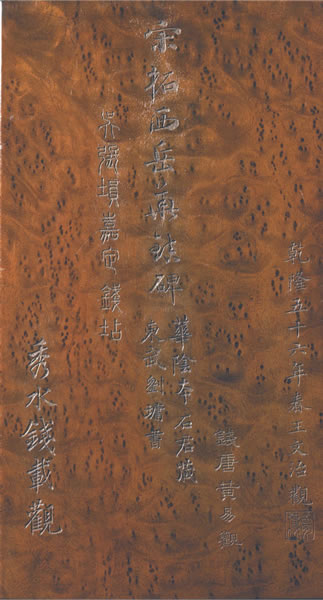 乾隆五十六年春王文治觀
錢唐黃易觀
宋拓西岳華碑
華陰本石君藏
東武劉墉書
吳張塤嘉定錢坫
秀水錢載觀